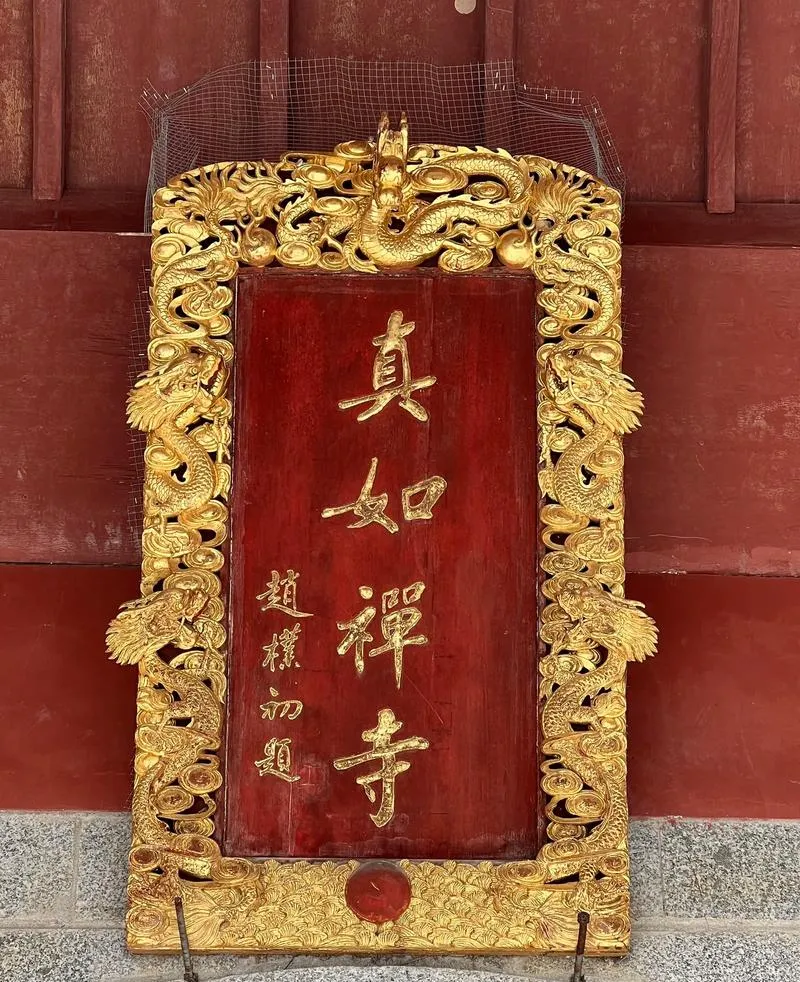 真如禪寺
趙樸初題